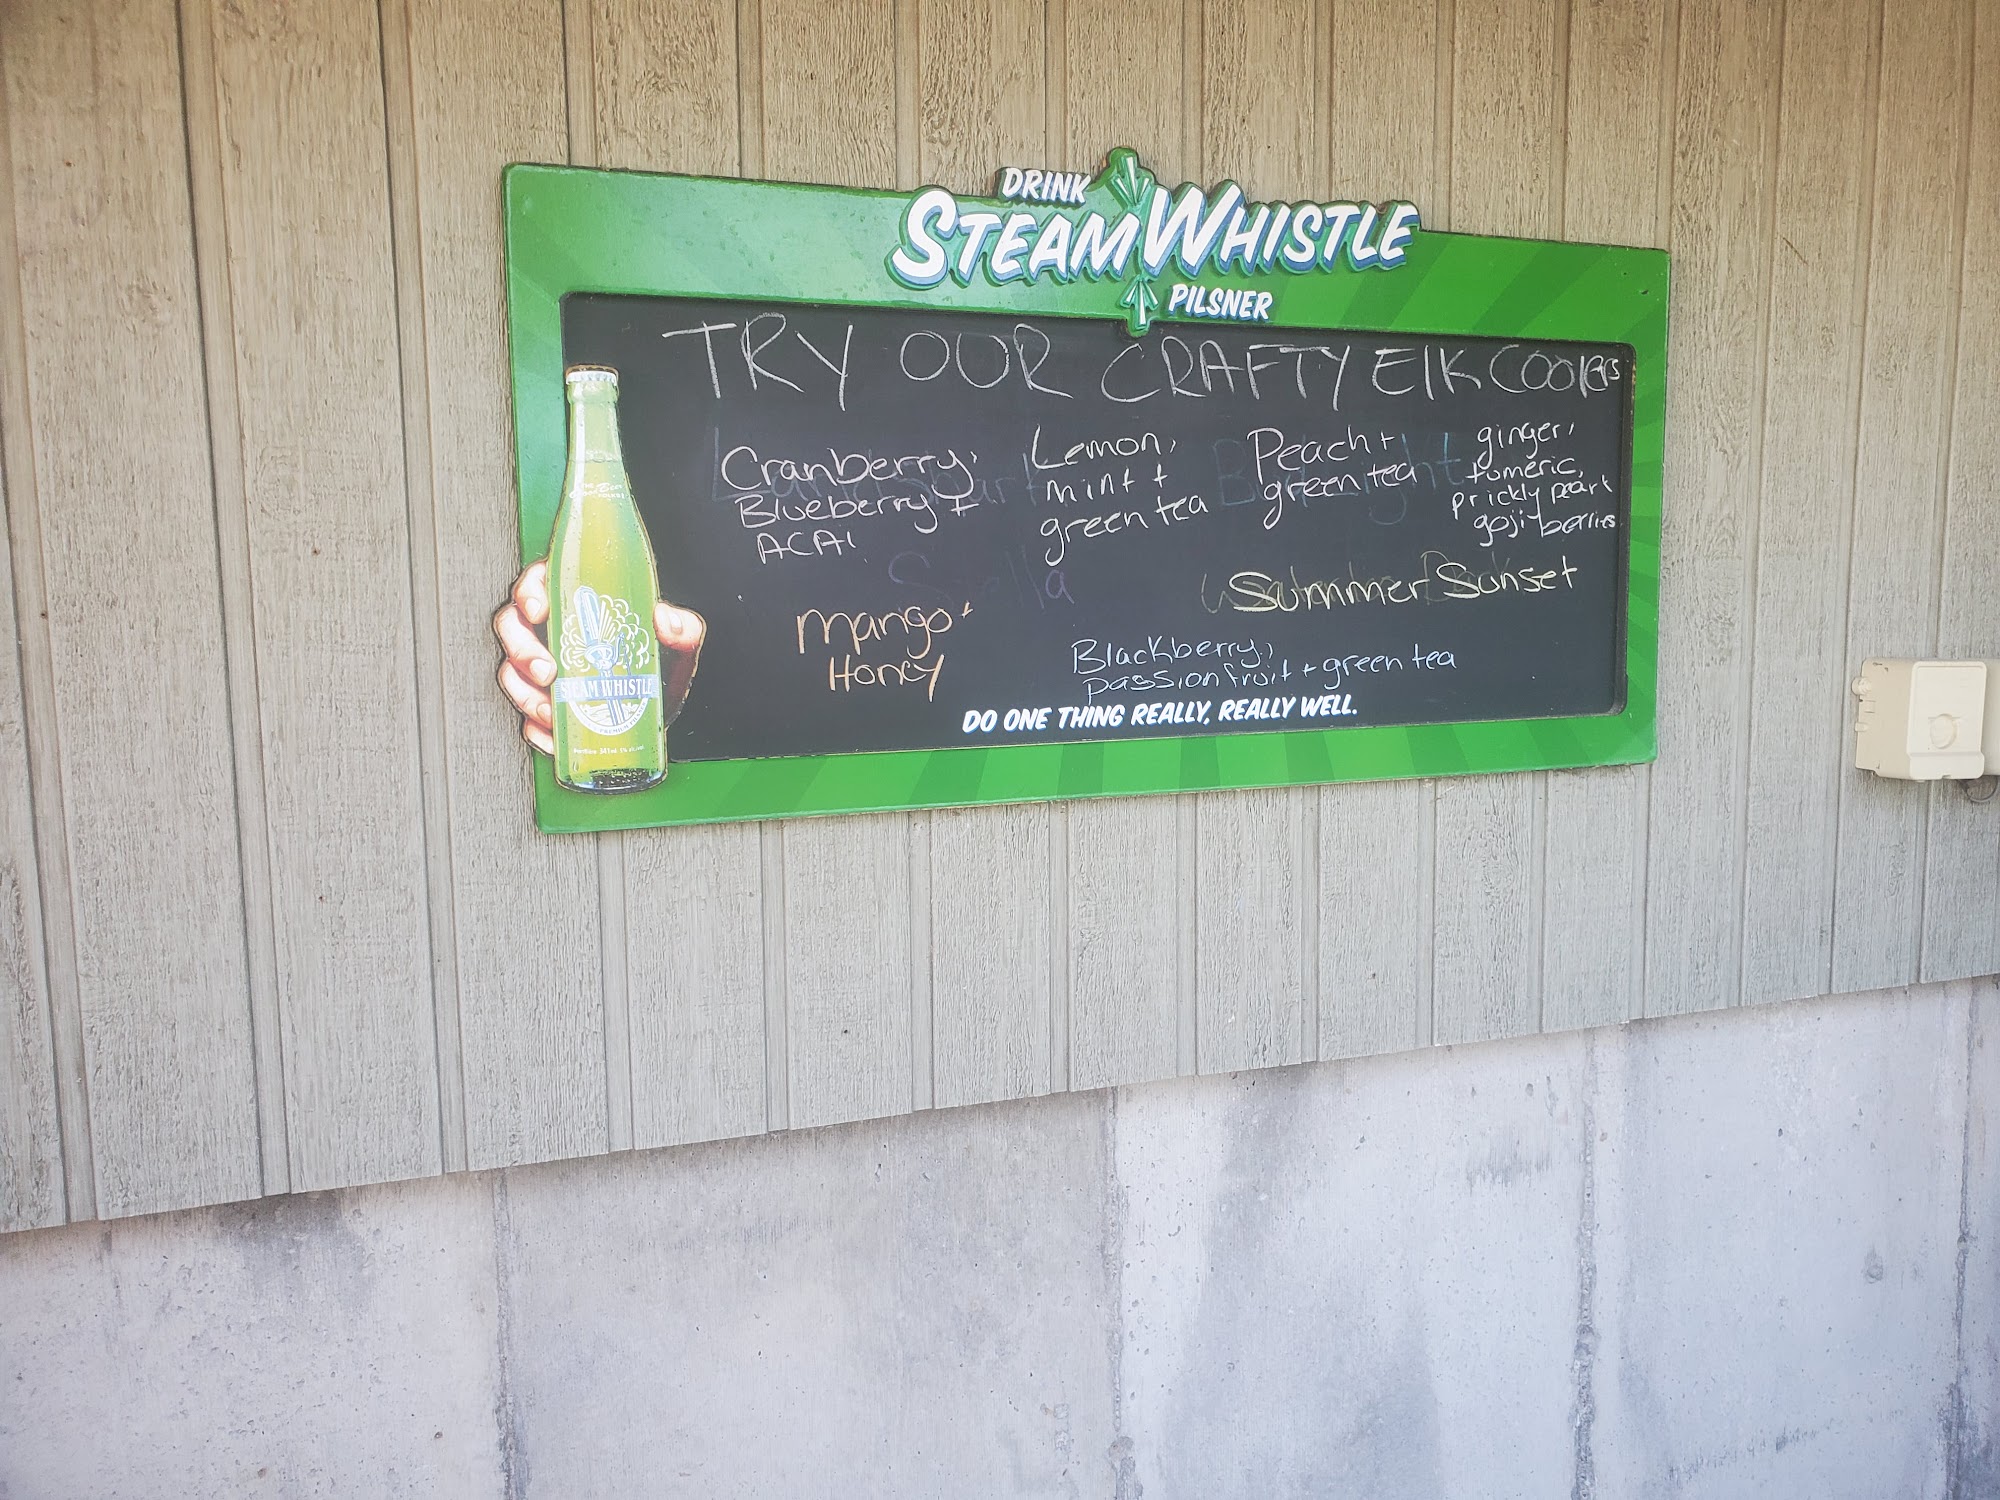 DRINK
STEAM WHISTLE
PILSNER
TRY OUR CRAFTY Elk Coolers
Cranberry,
Blueberry +
ACAI
Lemon,
mint +
green tea
Peach +
green tea
ginger,
tumeric,
prickly pear +
goji berries
Mango +
Honey
Summer Sunset
Blackberry,
passion fruit + green tea
DO ONE THING REALLY, REALLY WELL.
STEAM WHISTLE